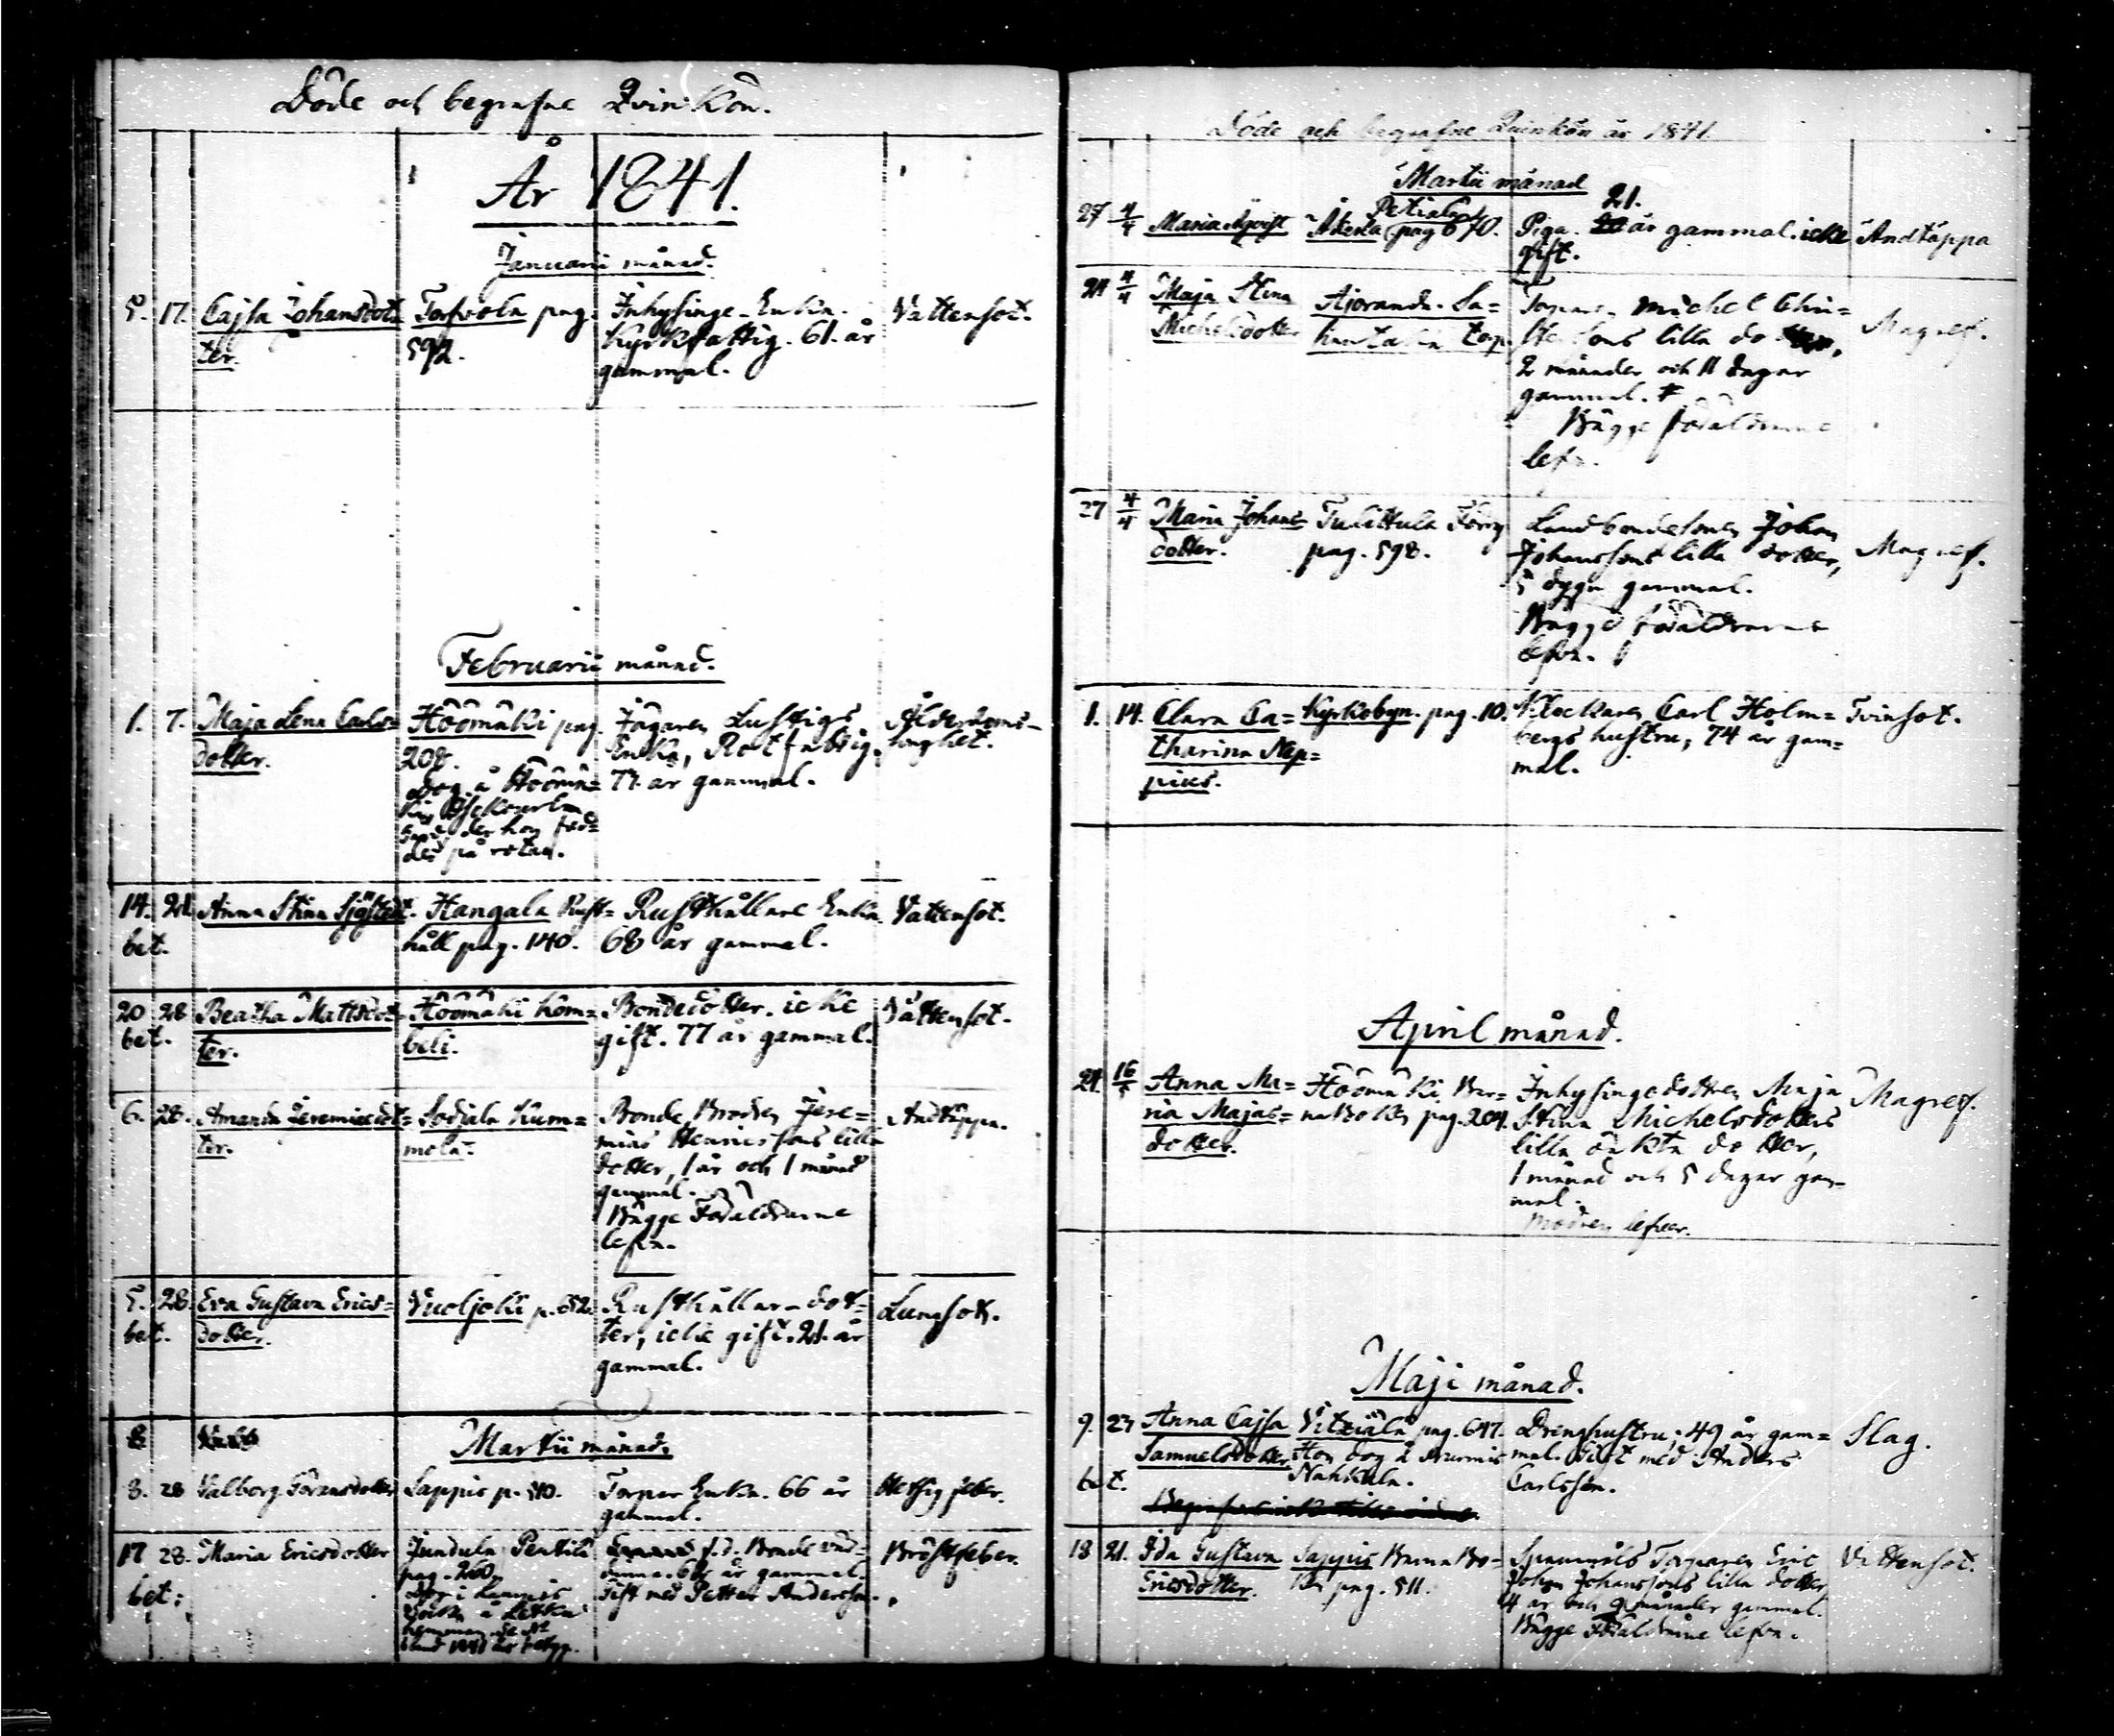 Döde och begrafne Qvinkön.
År 1841.
Januarii månad.
5. 17. Cajsa Johansdot-
ter.
pag.
592.
Inhysinge-Enka.
Kyrkfattig. 61. år
gammal.
Vattensot.
Februarii månad.
1. 7. Maja Lena Carls=
dotter.
Höömäki pag.
208.
Dog å
der hon föd=
des på rotan.
Jägaren Lustigs
Enka, Rotfattig,
77. år gammal.
Ålderdoms-
14. 21. Anna Stina
bet.
Hangala Rust=
håll pag. 140.
Rusthållare Enka.
68 år gammal.
Vattensot.
20 28 Beatha Mattsdot-
bet. ter.
Höömäki Kom=
beli.
Bondedotter. icke
gift. 77 år gammal.
Vattensot.
6. 28. Amanda Jeremiædot=
ter.
Sodjala Kum=
mola.
Bonde Broder, Jere=
mias Henricssons lilla
dotter, 1 år och 1 månad
gammal.
Bägge Föräldrarne
lefva.
Andtäppa.
5. 28. Eva Gustava Erics=
bet. dotter.
Vuoljoki p.
Rusthållar-dot=
ter, icke gift. 21. år
gammal.
Lungsot.
8
Martii månad.
8. 28 Valborg Göransdotter
Sappis p. 510.
Torpar Enka. 66 år
gammal.
Hetsig feber.
17 28. Maria Ericsdotter
bet:
Jundula Pentilä
pag. 260.
Dog i
f.d. Bonde
år gammal.
Gift med Petter Andersson.
Bröstfeber.
Döde och begrafne Qvinkön år 1841.
Martii månad
27 4/4 Maria
pag 670.
21.
Piga. år gammal. icke
gift.
Andtäppa
24 4/4 Maja Stina
Michelsdotter
torp
Michel Chri=
lilla dotter,
2 månader och 11 dagar
gammal.
Bägge föräldrarne
lefva.
Magref.
27 4/4 Maria Johans=
dotter.
pag. 598.
Landbondesonen Johan
Johanssons lilla dotter,
5 dygn gammal.
Bägge föräldrarne
lefva.
Magref.
1. 14. Clara Ca=
tharina Nep=
pius.
Kyrkobyn. pag. 10.
Klockaren Carl Holm=
bergs hustru, 74 år gam=
mal.
Tvinsot.
April månad.
24. 16/5 Anna Ma=
ria Majas=
dotter.
Höömäki, Bar=
naboken pag. 204.
Inhysingedottren Maja
Stina Michelsdotters
lilla oäkta dotter,
1 månad och 5 dagar gam-
mal.
Modren lefver.
Magref.
Maji månad.
9. 23 Anna Cajsa
Samuelsdotter
bet.
pag. 647.
Hon dog å Nurmis
Nahkala.
Drenghustru; 49 år gam=
mal. Gift med Anders
Carlsson.
Slag.
18 21. Ida Gustava
Ericsdotter.
Sappis Barna Bo-
ken pag. 511.
Spannmåls Torparen Eric
Johan Johanssons lilla dotter
4 år och 9 månader gammal.
Bägge Föräldrarne lefva.
Vattensot.